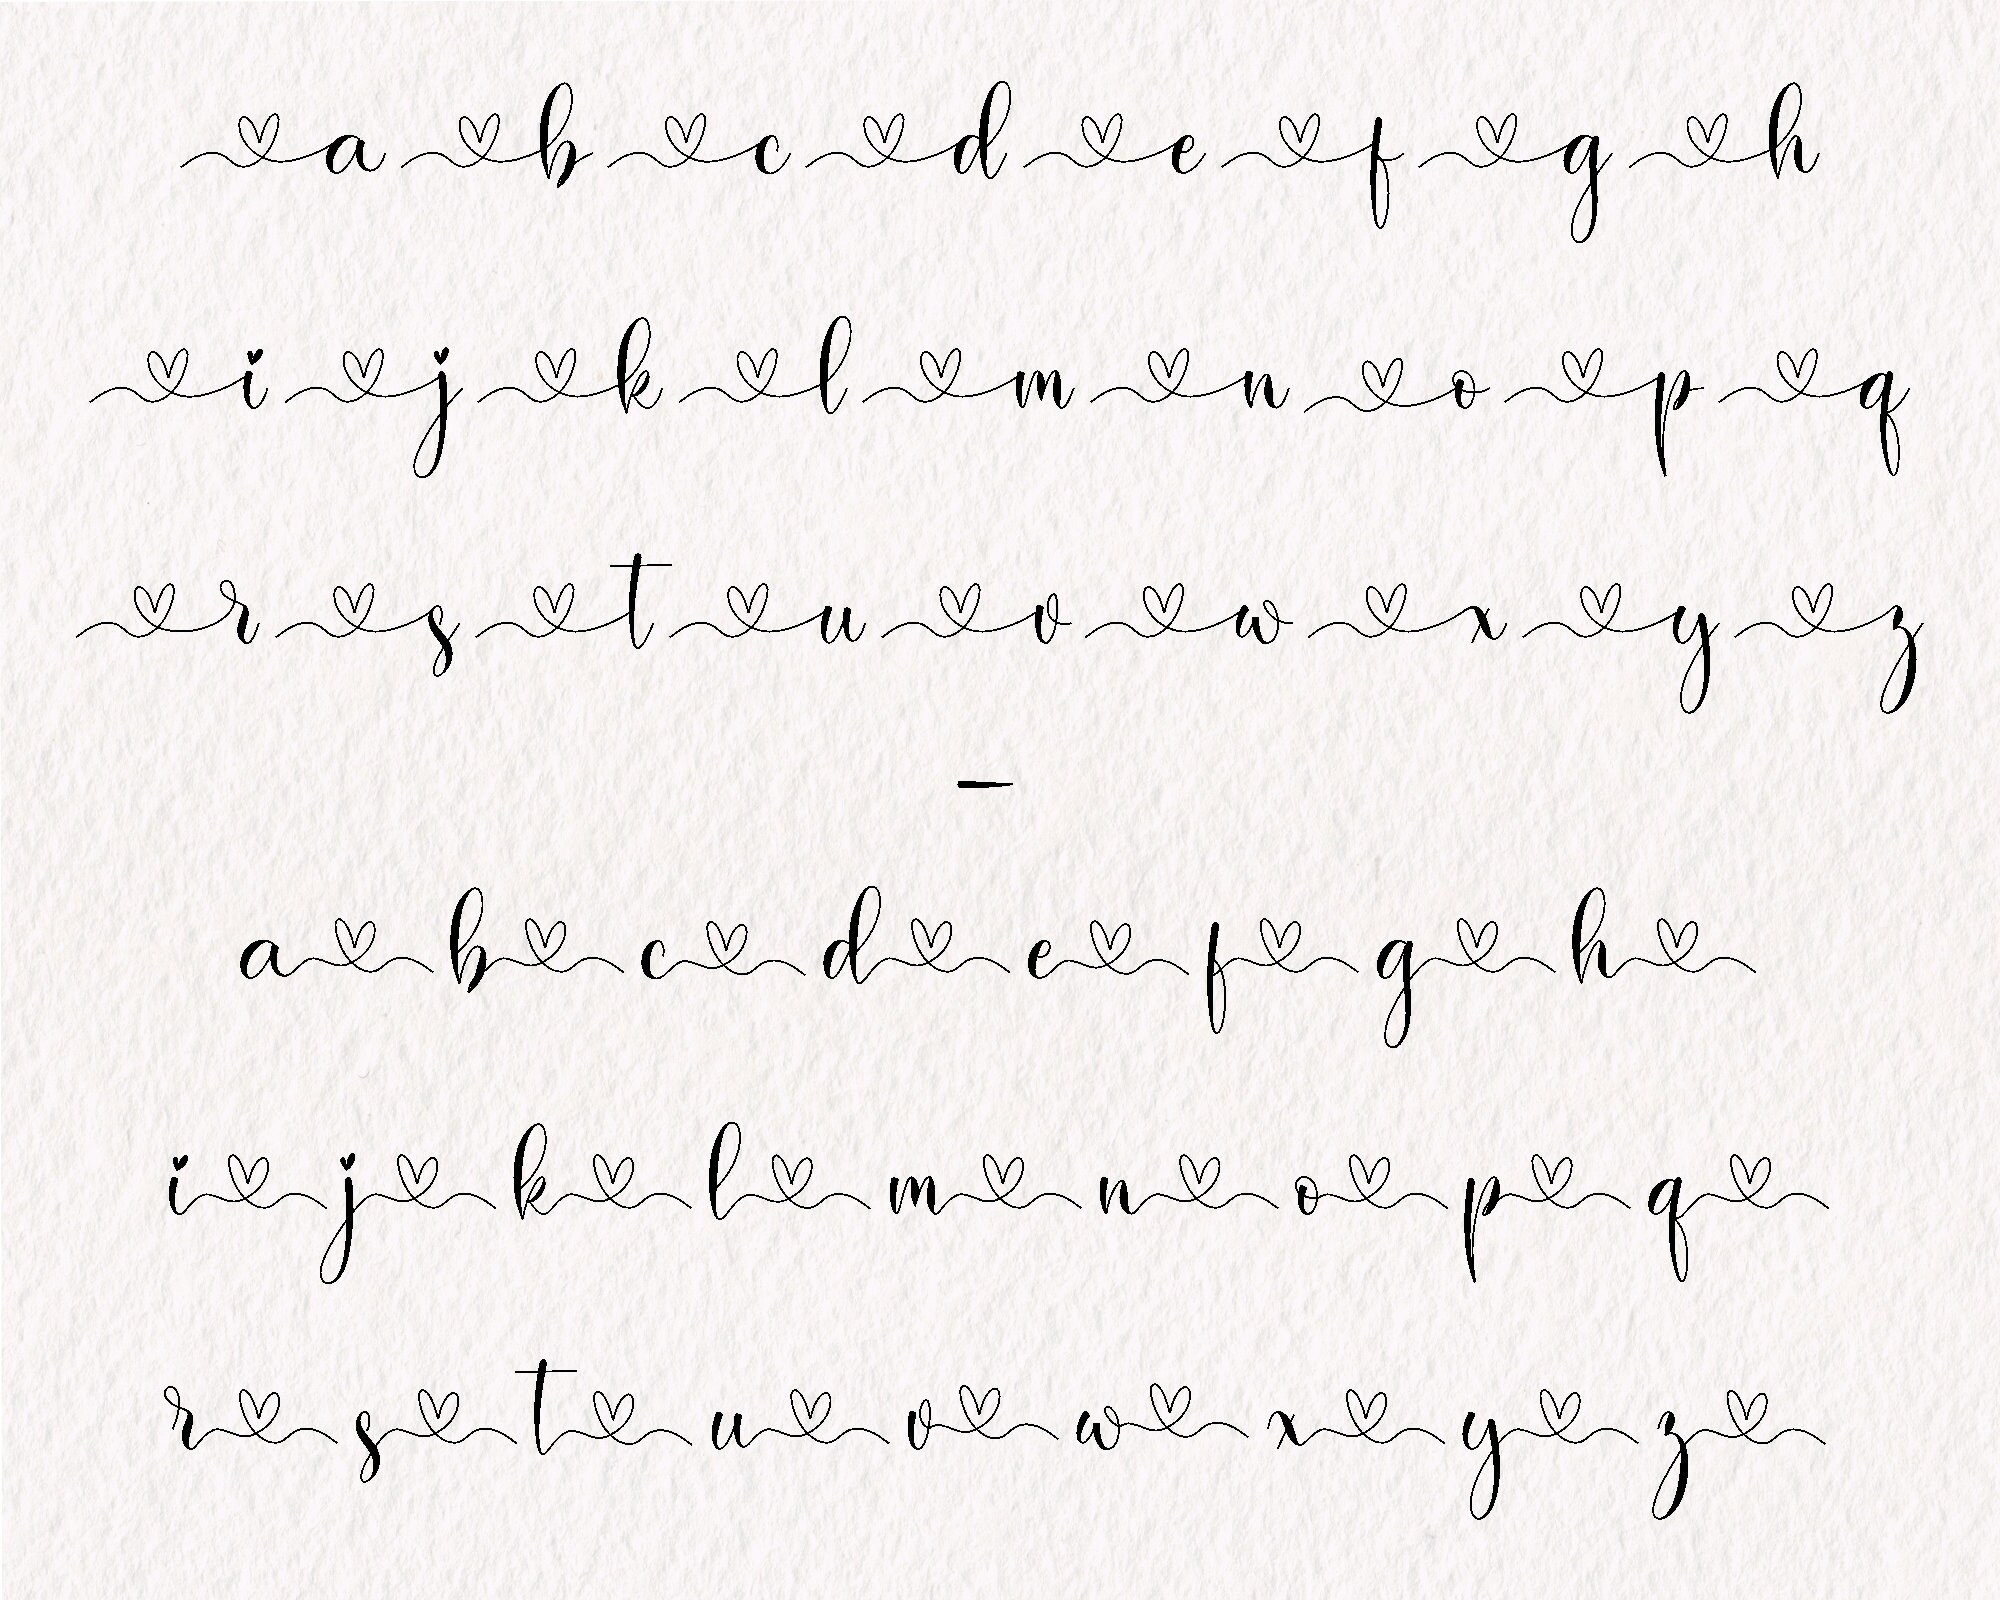 a b c d e f g h
i j k l m n o p q
r s t u v w x y z
–
a b c d e f g h
i j k l m n o p q
r s t u v w x y z